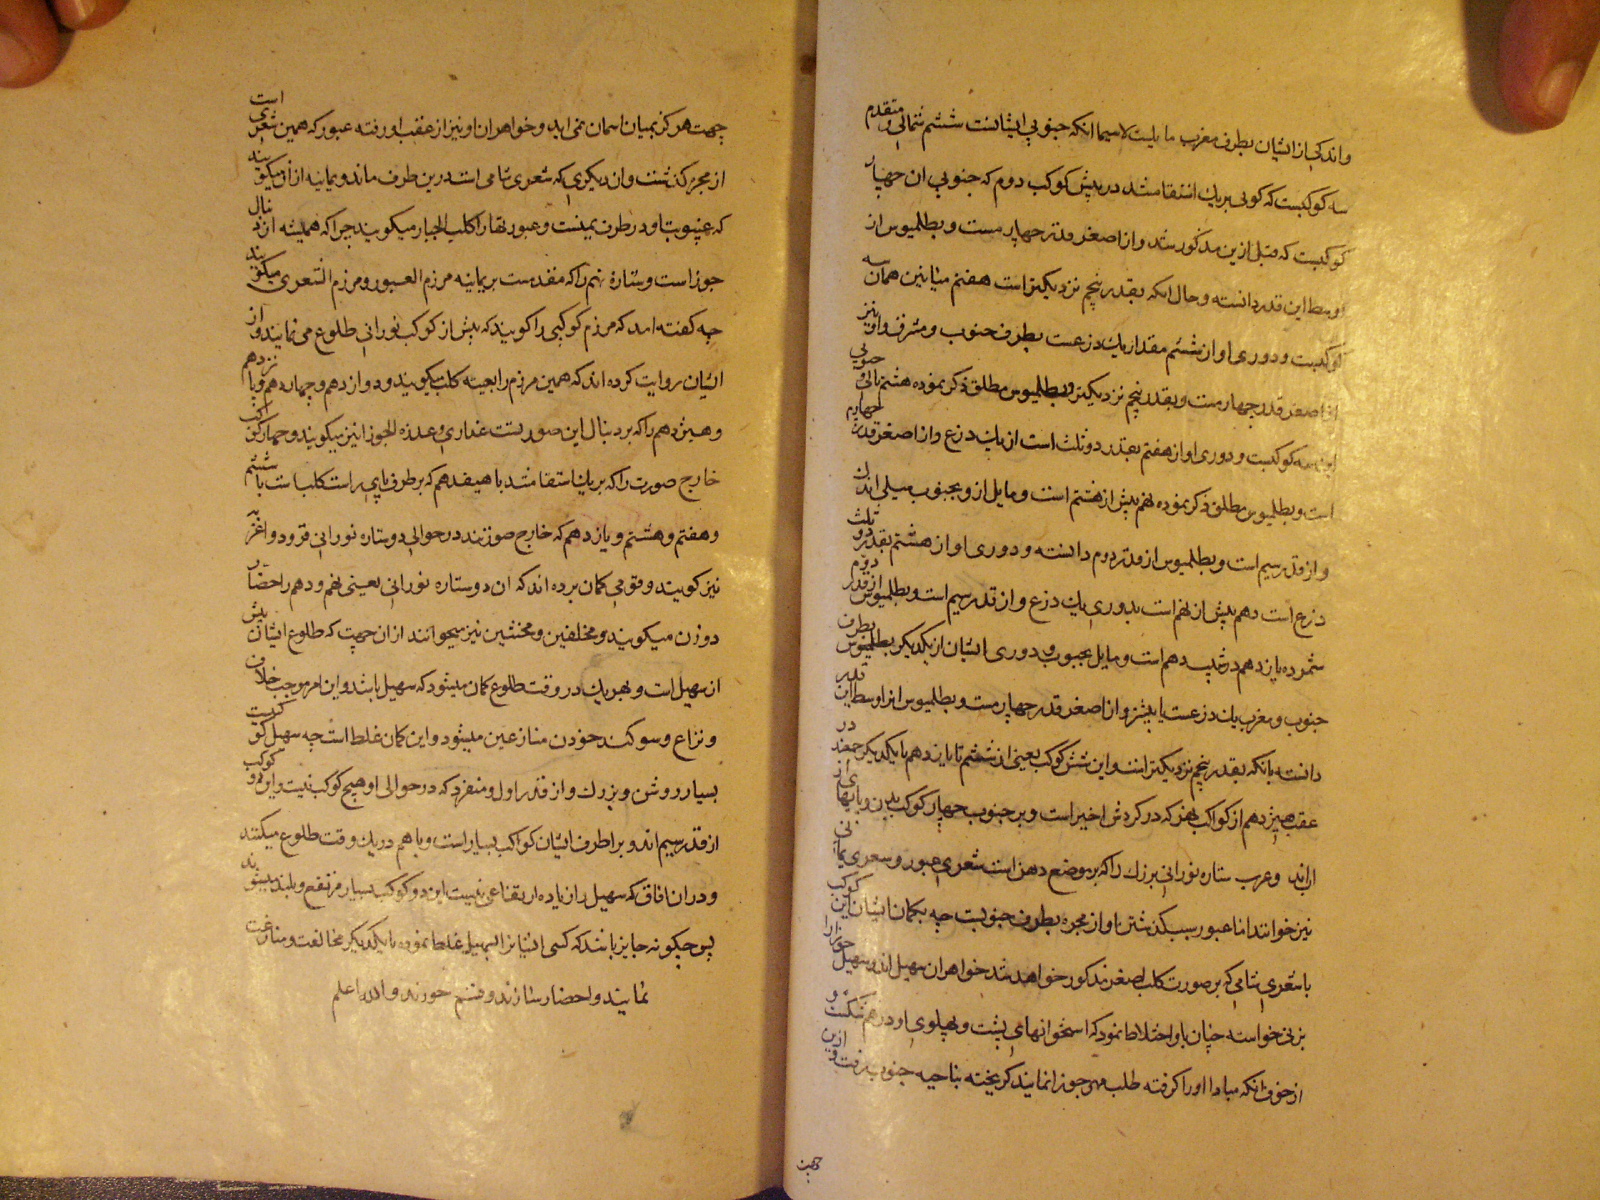 واندکی از ایشان بطرف مغرب مایلست لاسیما انکه جنوبی ایشانست ششم شمالی و متقدم
سه کوکبست که کوئی بریک استقامتند در پیش کوکب دوم که جنوبی ان چهار
کوکبست که قبل ازین مذکور شد و از اصغر قدر چهارمست و بطلمیوس از
اوسط این قدر دانسته و حال انکه بقدر پنجم نزدیکتر است هفتم میانین همان سه
کوکبست و دوری او از ششم مقدار یک ذرعست بطرف جنوب و مشرق و او نیز
از اصغر قدر چهارمست و بقدر پنجم نزدیکتر و بطلمیوس مطلق ذکر نموده هشتم تالی و جنوبی
این سه کوکبست و دوری او از هفتم بقدر دو ثلث است از یک ذرع و از اصغر قدر چهارم
است و بطلمیوس مطلق ذکر نموده نهم پیش از هشتم است و مایل از و بجنوب میلی اندک
و از قدر سیم است و بطلمیوس از قدر دوم دانسته و دوری او از هشتم بقدر دو ثلث
ذرع است دهم پیش از نهم است بدوری یک ذرع و از قدر سیم است و بطلمیوس از قدر دوم
شمرده یازدهم در پیش دهم است و مایل بجنوب و دوری ایشان از یکدیکر بطرف
جنوب و مغرب یک ذرعست یا بیشتر و از اصغر قدر چهارمست و بطلمیوس از اوسط این قدر
دانسته با انکه بقدر پنجم نزدیکتر است و این شش کوکب یعنی از ششم تا یازدهم با یکدیکر در
عقب هیژدهم از کواکب نهر که در کردش اخیر است و بر جنوب چهار کوکب بدن و پایهای
ارنبند و عرب ستاره نورانی بزرک را که بر موضع دهن است شعری عبور و شعری یمانی
نیز خوانند اما عبور بسبب کذشتن او از مجره بطرف جنوبست چه بکمان ایشان این کوکب
با شعری شامی که بر صورت کلب اصغر مذکور خواهد شد خواهران سهیل اند و سهیل جوزا را
بزنی خواسته چنان باو اختلاط نمود که استخوانهای پشت و پهلوی او در هم شکست و
از خوف انکه مبادا او را کرفته طلب مهر جوزا نمایند کریخته بناحیه جنوب رفت و ازین
جهت
جهت هرکز بمیان اسمان نمی اید و خواهران او نیز از عقب او رفته عبور که همین شعری است
از مجره کذشت و ان دیکری که شعری شامی است درین طرف ماند و یمانیه از ان میکویند
که غیبوبت او در طرف یمنست و عبور تنها را کلب الجبار میکویند چرا که همیشه از دنبال
جوزاست و ستاره نهم را که مقدمست بر یمانیه مرزم العبور و مرزم الشعری میکویند
چه کفته اند که مرزم کوکبی را کویند که پیش از کوکب نورانی طلوع می نماید و از
ایشان روایت کرده اند که همین مرزم را بعینه کلب میکویند و دوازدهم و چهاردهم و پانزدهم
و هیژدهم را که بر دنبال این صورتست عذاری و عذره الجوزا نیز میکویند و چهار کوکب
خارج صورت را که بریک استقامتند با هیفدهم که بر طرف پای راست کلب است با ششم
و هفتم و هشتم و یازدهم که خارج صورتند در حوالی دو ستاره نورانی قرود و اغربه
نیز کویند و قومی کمان برده اند که ان دو ستاره نورانی یعنی نهم و دهم را حضار
و وزن میکویند و محلفین و محنثین نیز میخوانند از ان جهت که طلوع ایشان پیش
از سهیل است و بهر یک در وقت طلوع کمان میشود که سهیل باشد و این امر موجب خلاف
و نزاع و سوکند خوردن متنازعین میشود و این کمان غلط است چه سهیل کوکبیست
بسیار روشن و بزرک و از قدر اول و منفرد که در حوالی او هیچ کوکب نیست و این دو کوکب
از قدر سیم اند و بر اطراف ایشان کواکب بسیار است و با هم در یک وقت طلوع میکنند
و دران افاق که سهیل را زیاده ارتفاعی نیست این دو کوکب بسیار مرتفع و بلند میشوند
پس چکونه جایز باشد که کسی ایشانرا بسهیل غلط نموده با یکدیکر مخالفت و منازعت
نمایند و احضار ستارند و قسم خورند والله اعلم